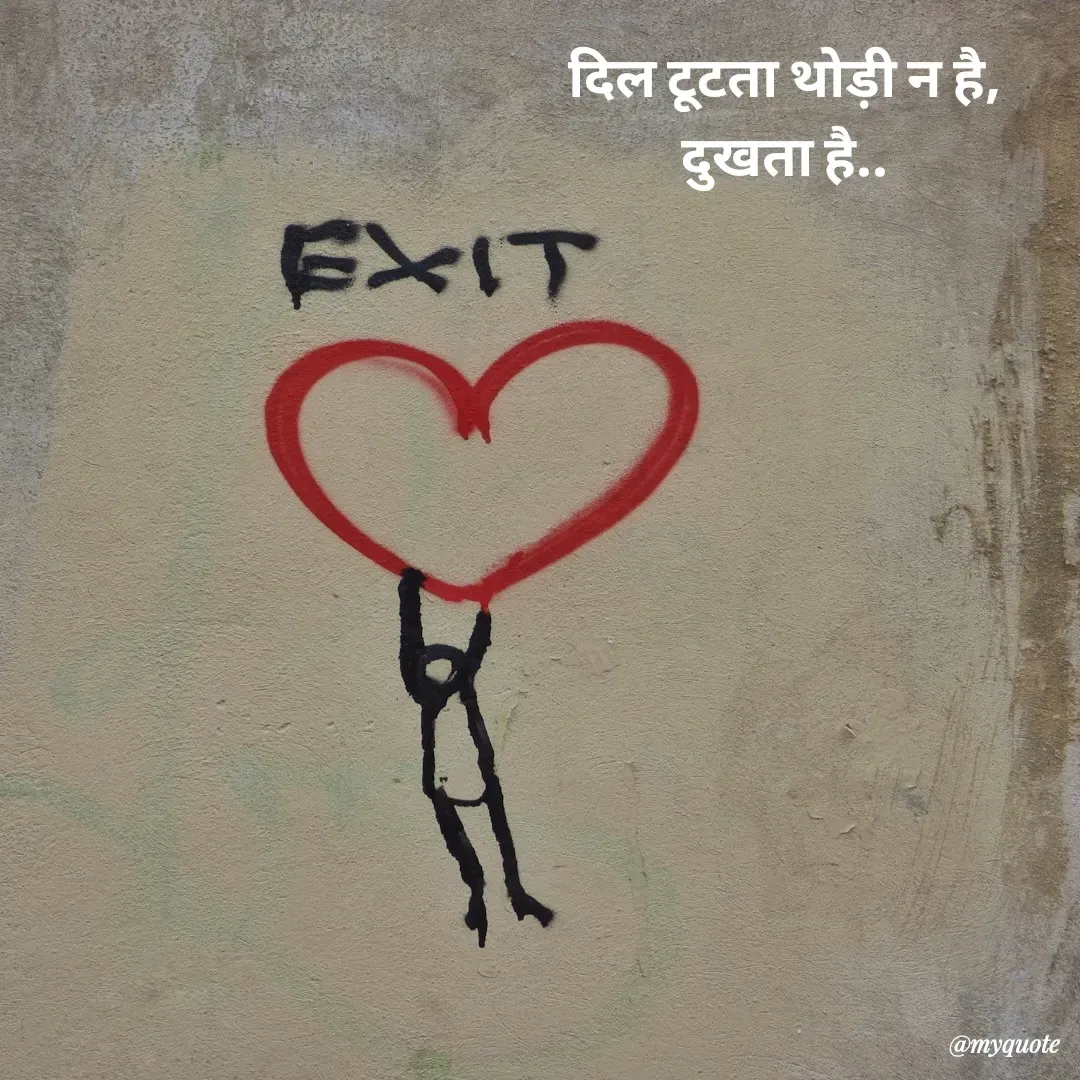 दिल टूटता थोड़ी न है,
दुखता है..
EXIT
@myquote